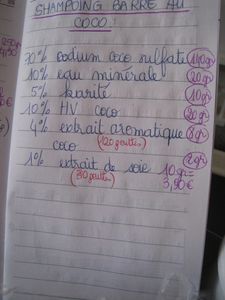 SHAMPOING BARRE AU
COCO :
70% sodium coco sulfate 140gr
10% eau minérale 20gr
5% karité 10gr
10% HV coco 20gr
4% extrait aromatique 8gr
coco (120 gouttes)
1% extrait de soie 2gr
(30 gouttes) 10gr =
3,90€